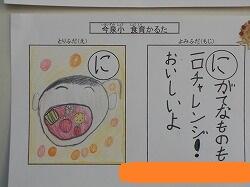 今泉小 食育かるた
とりふだ(え)
よみふだ(もじ)
に
に
にがてなものも
一口チャレンジ!
おいしいよ